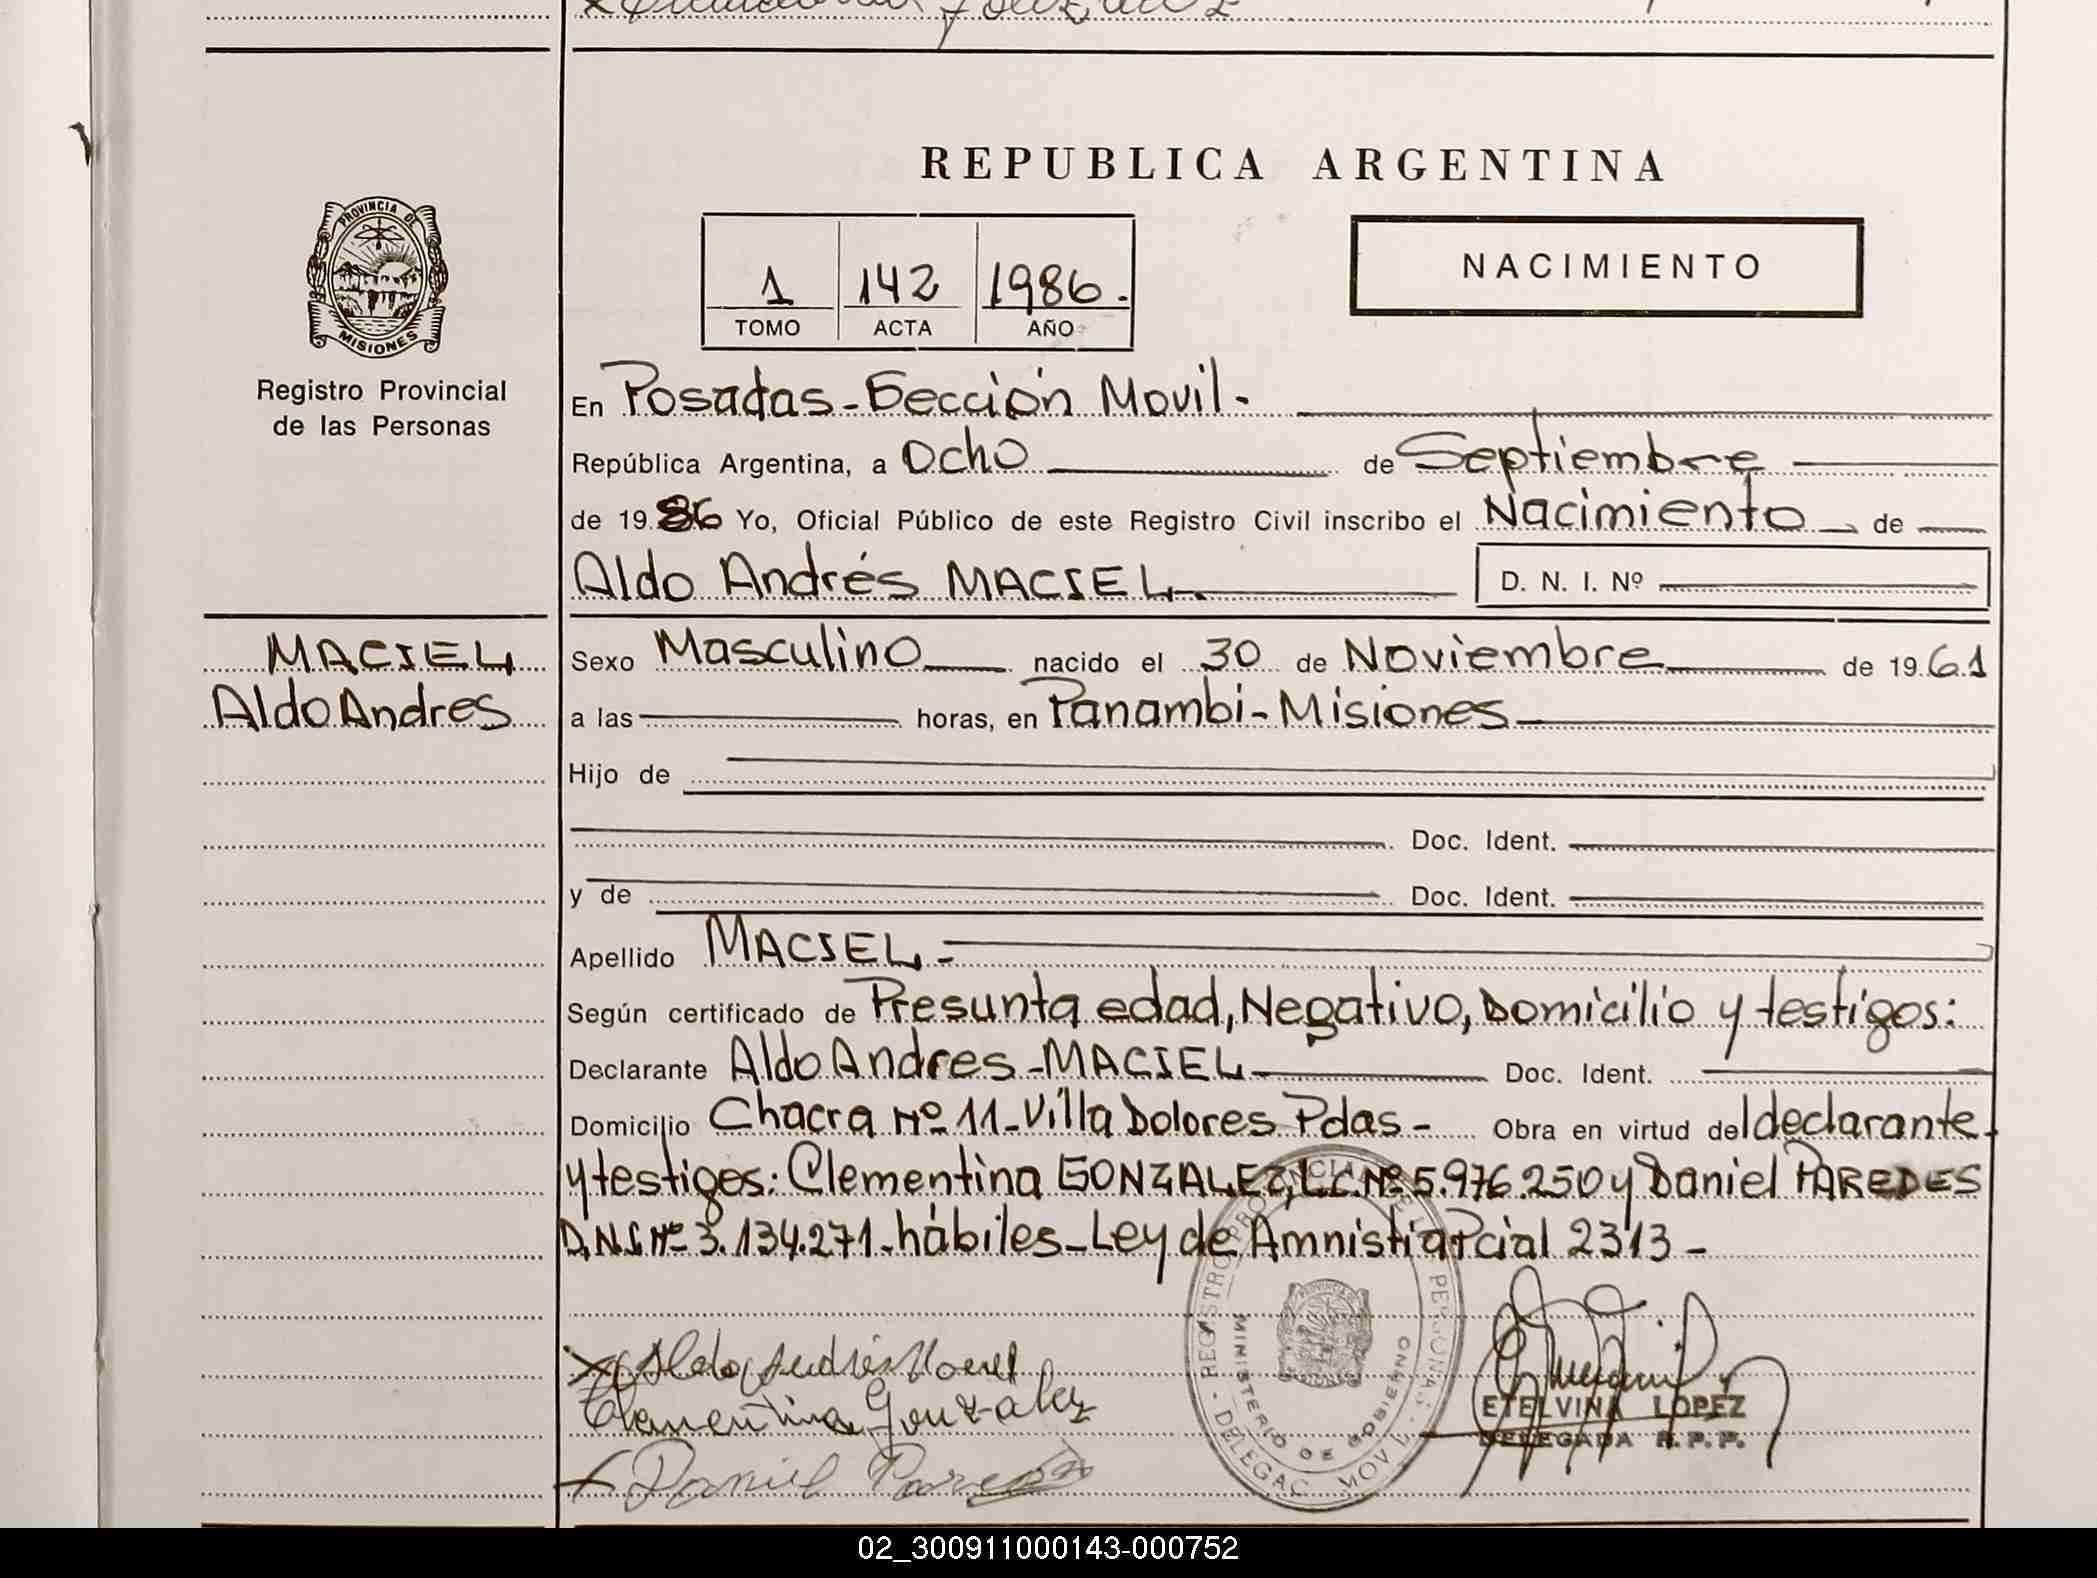 REPUBLICA ARGENTINA
PROVINCIA DE
MISIONES
Registro Provincial
de las Personas
1 142 1986.
TOMO ACTA AÑO
NACIMIENTO
En Posadas - Sección Movil -
República Argentina, a Ocho de Septiembre
de 1986 Yo, Oficial Público de este Registro Civil inscribo el Nacimiento de
Aldo Andrés MACIEL D. N. I. Nº
MACIEL
Aldo Andres
Sexo Masculino nacido el 30 de Noviembre de 1961
a las horas, en Panambi - Misiones
Hijo de
Doc. Ident.
y de Doc. Ident.
Apellido MACIEL -
Según certificado de Presunta edad, Negativo, Domicilio y testigos:
Declarante Aldo Andres - MACIEL Doc. Ident.
Domicilio Chacra Nº 11 - Villa Dolores Pdas - Obra en virtud del declarante
y testigos: Clementina GONZALEZ, L.C. Nº 5.976.250 y Daniel PAREDES
D.N.I. Nº 3.134.271 - hábiles - Ley de Amnistia Pcial 2313 -
Aldo Andrés Maciel
Clementina Gonzalez
Daniel Paredes
REGISTRO PROVINCIAL DE LAS PERSONAS
MINISTERIO DE GOBIERNO
DELEGAC MOVIL
ETELVINA LOPEZ
DELEGADA R. P. P.
02_300911000143-000752